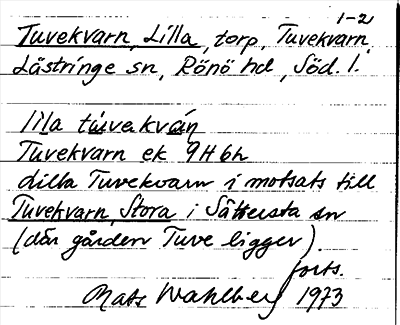 1-2
Tuvekvarn, Lilla, torp, Tuvekvarn,
Lästringe sn, Rönö hd, Söd. l.
lila tùvəkváṇ
Tuvekvarn ek 9H6h
Lilla Tuvekvarn i motsats till
Tuvekvarn, Stora i Sättersta sn
(där gården Tuve ligger).
forts.
Mats Wahlberg 1973